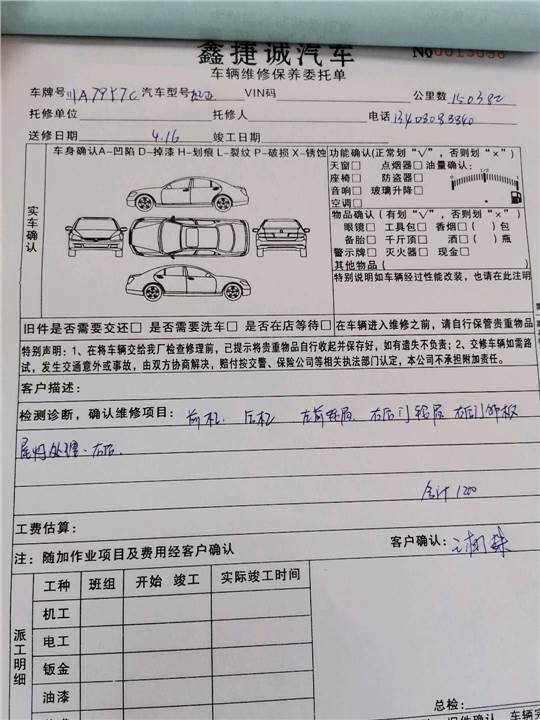 鑫捷诚汽车 No0013036
车辆维修保养委托单
车牌号 川A79Y7C 汽车型号 VIN码 公里数 150382
托修单位 托修人 电话 13408083840
送修日期 4.16 竣工日期
实车确认
车身确认A-凹陷 D-掉漆 H-划痕 L-裂纹 P-破损 X-锈蚀
功能确认(正常划“√”,否则划“×”)
天窗□ 点烟器□ 油量确认:
座椅□ 防盗器□
音响□ 玻璃升降□
空调□
0 1/2 1
物品确认(有划“√”,否则划“×”)
眼镜□ 工具包□ 香烟□( )包
备胎□ 千斤顶□ 酒□( )瓶
警示牌□ 灭火器□ 现金□
其他物品( )
特别说明如车辆经过性能改装,也请在此注明
旧件是否需要交还□ 是否需要洗车□ 是否在店等待□ 在车辆进入维修之前,请自行保管贵重物品
特别声明:1、在将车辆交给我厂检查修理前,已提示将贵重物品自行收起并保存好,如有遗失不负责;2、交修车辆如需路
试,发生交通意外或事故,由双方协商解决,赔付按交警、保险公司等相关执法部门认定,本公司不承担附加责任。
客户描述:
检测诊断,确认维修项目: 前杠 后杠 右后门
处理 右后
合计1200
工费估算:
注:随加作业项目及费用经客户确认 客户确认:
派工明细
工种 班组 开始 竣工 实际竣工时间
机工
电工
钣金
油漆
总检: